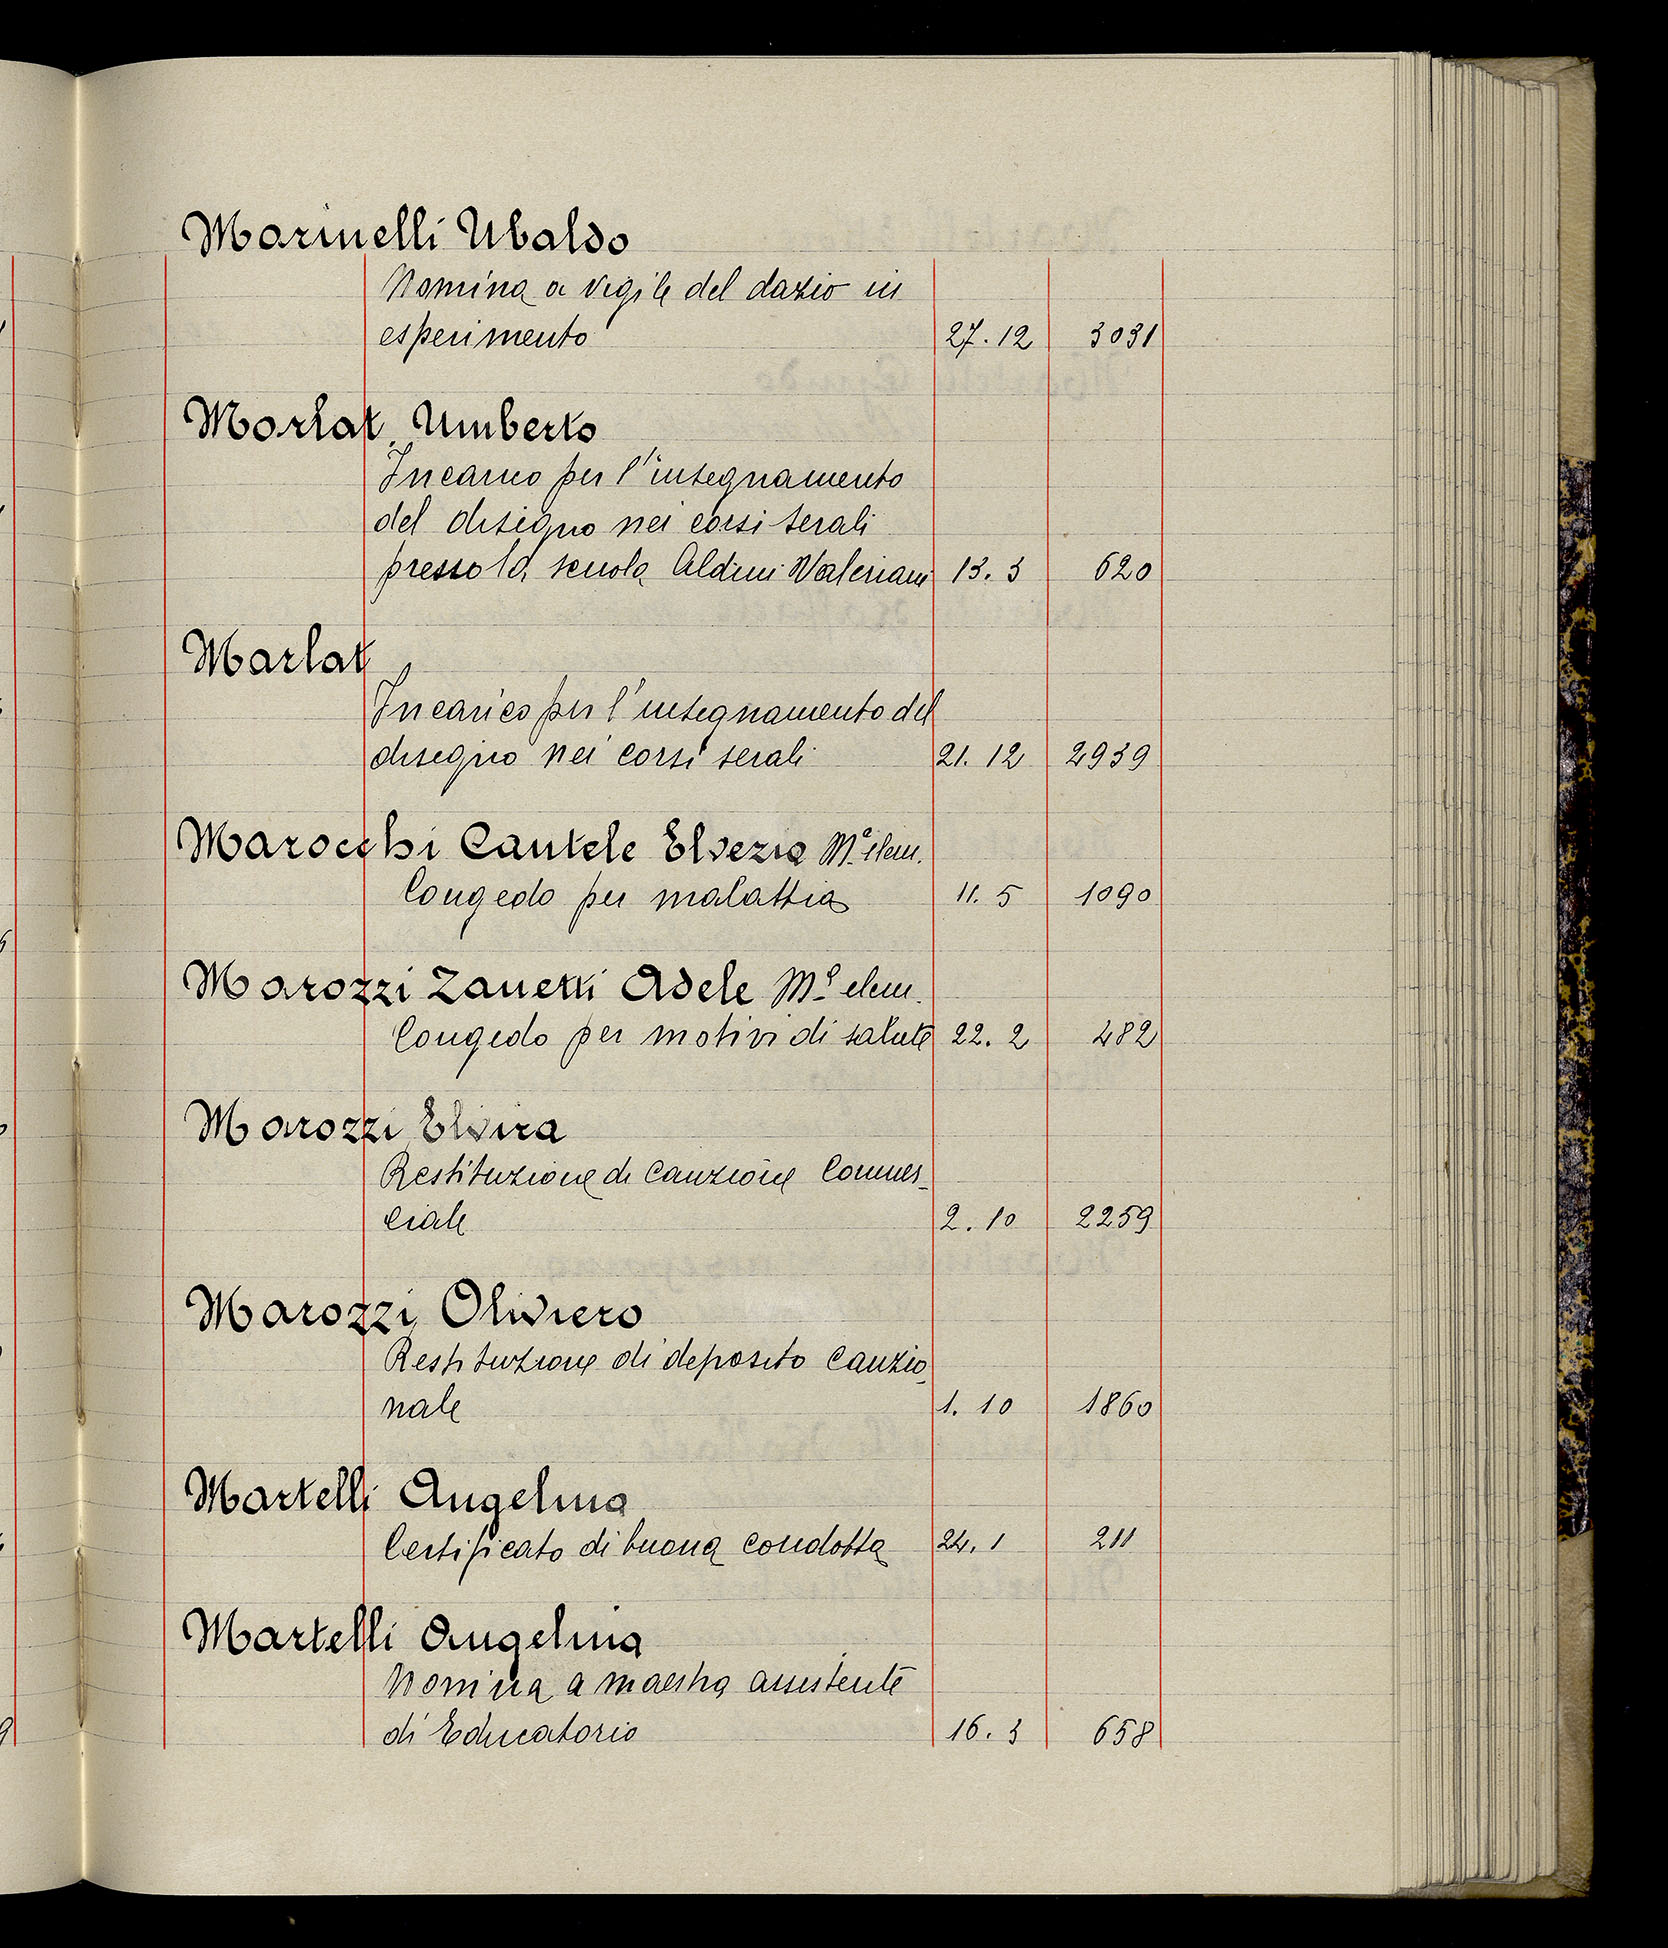 Marinelli Ubaldo
Nomina a vigile del dazio in
esperimento 27.12 3031
Marlat Umberto
Incarico per l'insegnamento
del disegno nei corsi serali
presso la scuola Aldini Valeriani 13.3 620
Marlat
Incarico per l'insegnamento del
disegno nei corsi serali 21.12 2939
Marocchi Cantele Elvezia Mª elem.
Congedo per malattia 11.5 1090
Marozzi Zanetti Adele Mª elem.
Congedo per motivi di salute 22.2 482
Marozzi Elvira
Restituzione di cauzione Commer-
ciale 2.10 2259
Marozzi Oliviero
Restituzione di deposito cauzio-
nale 1.10 1860
Martelli Angelina
Certificato di buona condotta 24.1 211
Martelli Angelina
Nomina a maestra assistente
di Educatorio 16.3 658